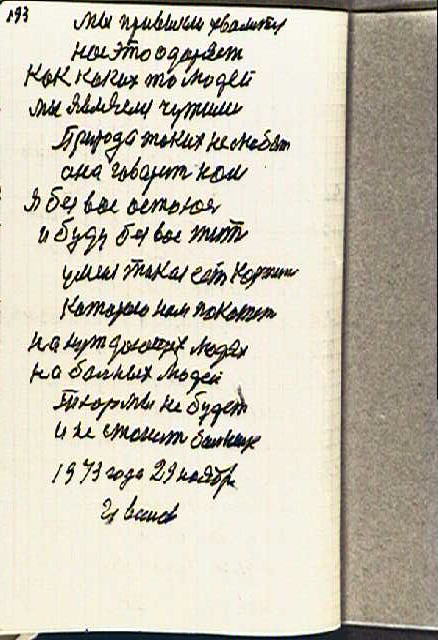 193
мы привыкли хвалить
нас это одаряет
как каких то людей
мы являем чужими
Природа таких не любит
она говорит нам
Я без вас остаюся
и буду без вас жить
у меня такая есть Картина
которою нам покажет
на нуждающих людях
на больных людей
тюрьмы не будет
и не станет больных
1973 года 29 ноября
Иванов